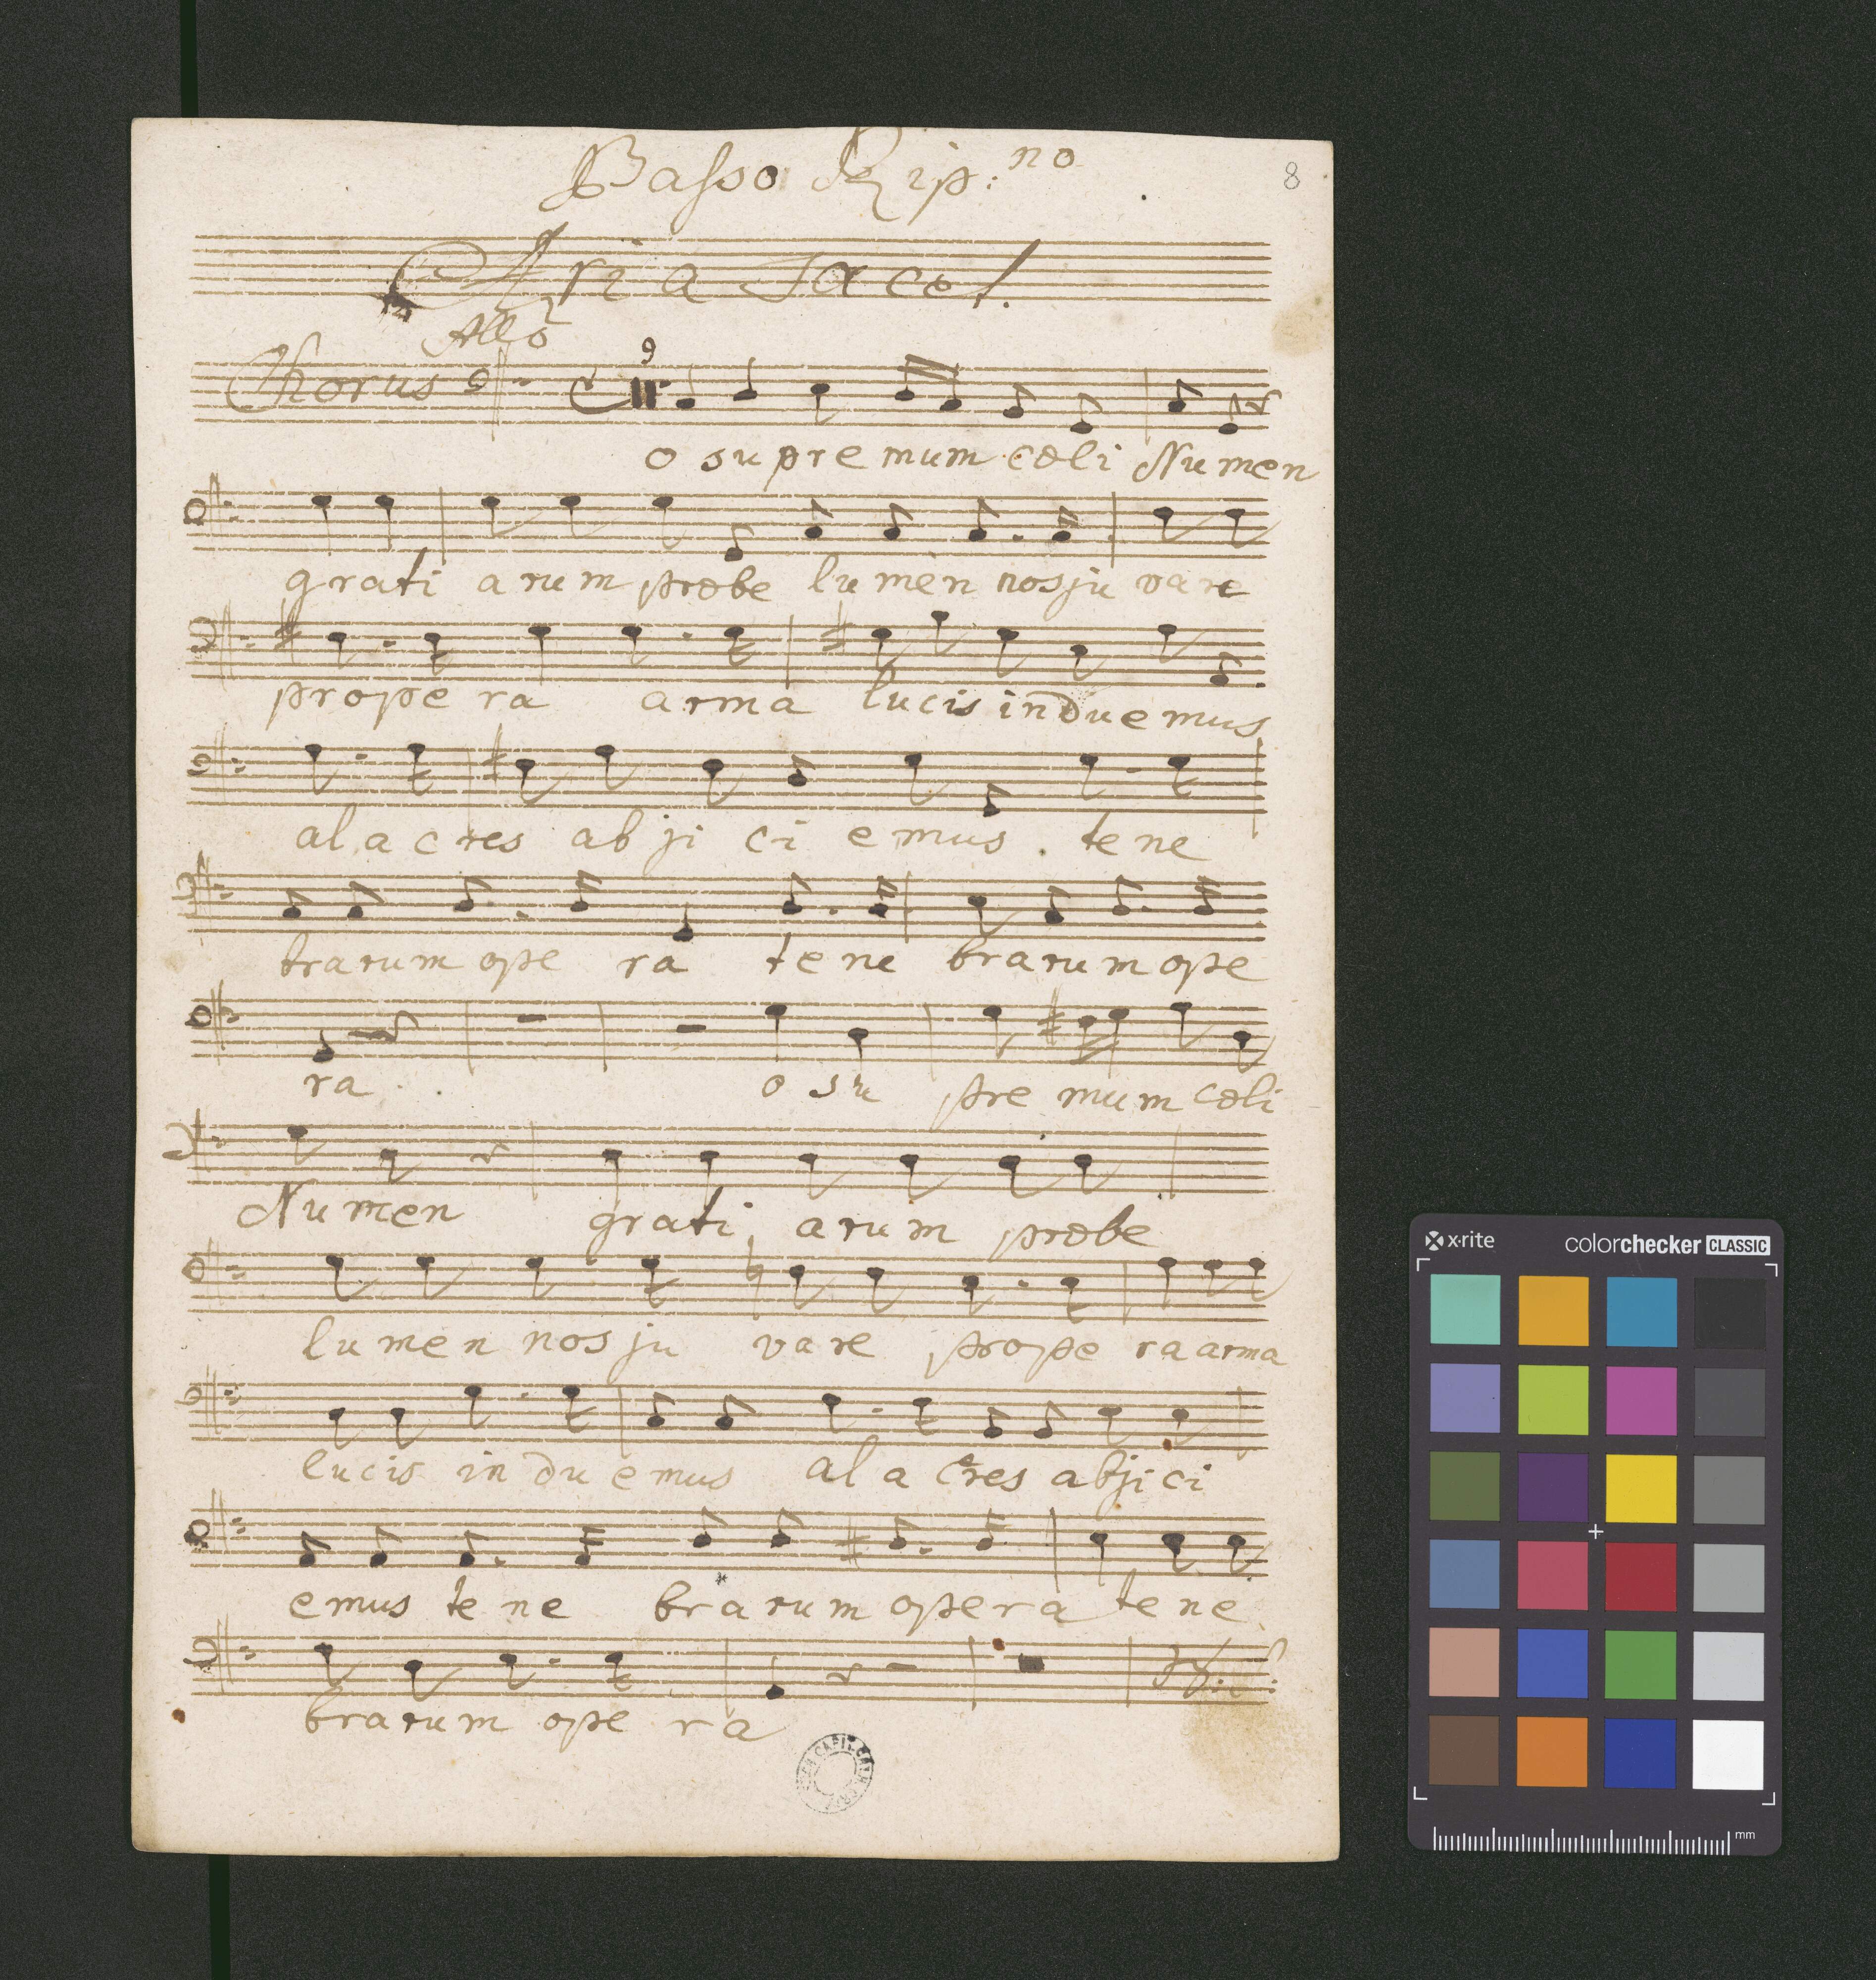 Basso Rip:no
8
Aria Tacet.
Allo
9
Chorus
o su pre mum cœli Numen
grati arum præbe lu men nos ju vare
prope ra arma lucis induemus
al a c res ab ji ci e mus te ne
brarum ope ra te ne brarum ope
ra o su pre mum cœli
Numen grati arum præbe
lu men nos ju vare prope ra arma
lucis in du e mus al a cres abji ci
emus te ne brarum opera te ne
brarum ope ra
x·rite colorchecker CLASSIC
mm